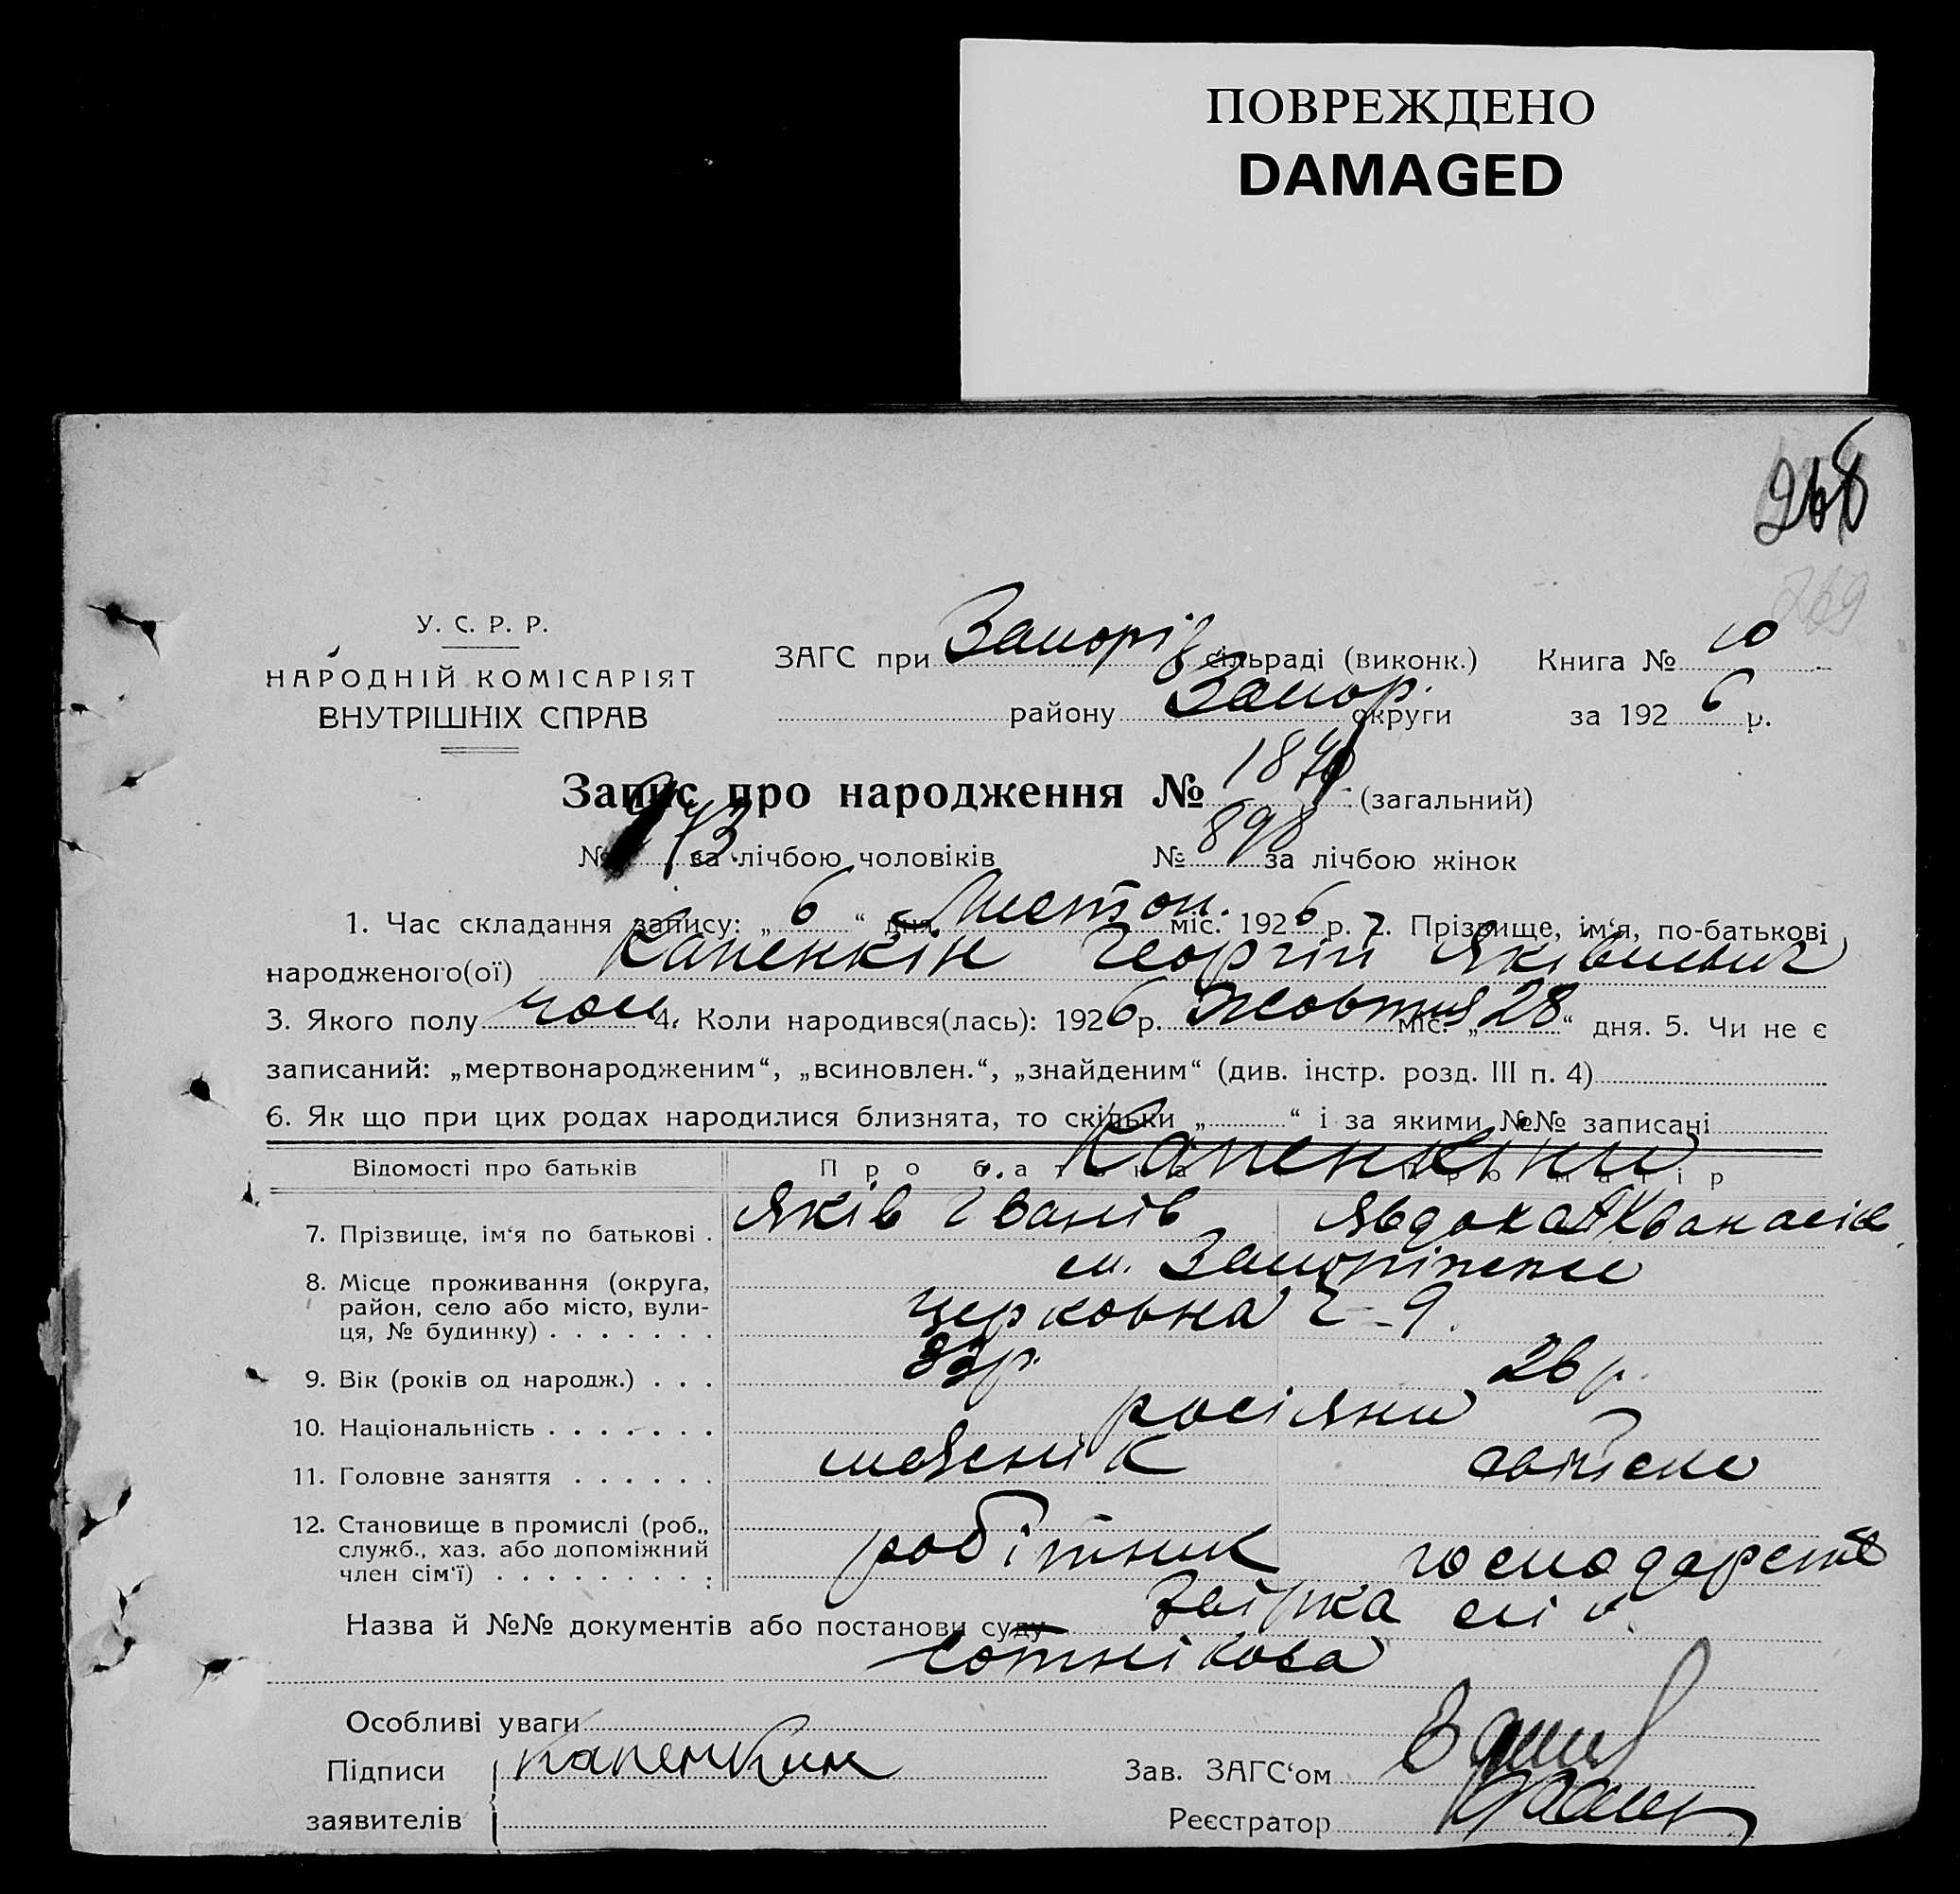 ПОВРЕЖДЕНО
DAMAGED
268
269
У. С. Р. Р.
НАРОДНІЙ КОМІСАРІЯТ
ВНУТРІШНІХ СПРАВ
ЗАГС при Запоріз сільраді (виконк.) Книга № 10
району Запор. округи за 1926 р.
Запис про народження № (загальний)
№ 973 за лічбою чоловіків № 898 за лічбою жінок
1. Час складання запису: „ 6 “ дня Листоп. міс. 1926 р. 2. Прізвище, ім‘я, по-батькові
народженого(ої) Капенкін Георгій Яківич
3. Якого полу чол. 4. Коли народився(лась): 1926 р. Жовтня міс. „ 28 “ дня. 5. Чи не є
записаний: „мертвонародженим“, „всиновлен.“, „знайденим“ (див. інстр. розд. III п. 4)
6. Як що при цих родах народилися близнята, то скільки „ “ і за якими №№ записані
Відомості про батьків Про батька Про матір
Капенкіни
7. Прізвище, ім‘я по батькові . Яків Іванів Явдоха Афанасів
8. Місце проживання (округа, м. Запоріжжє
район, село або місто, вули-
ця, № будинку) . . . . . . . Церковна 9.
9. Вік (років од народж.) . . . р. 26 р.
10. Національність . . . . . . . росіяни
11. Головне заняття . . . . . .
12. Становище в промислі (роб.,
служб., хаз. або допоміжний
член сім‘ї) . . . . . . . . . : робітник господарств
Назва й №№ документів або постанови суду
Сотнікова
Особливі уваги
Підписи Капенкин Зав. ЗАГС‘ом
заявителів Реєстратор